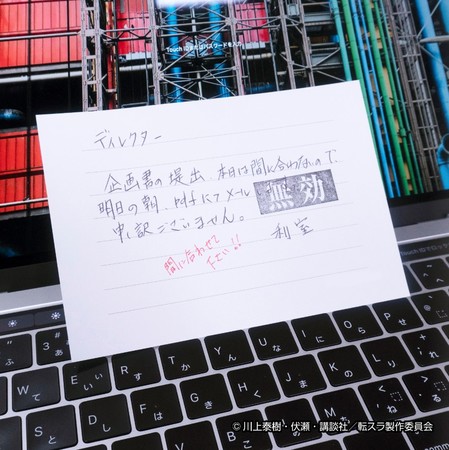 Touch IDまたはパスワードを入力
ディレクター
企画書の提出、本日は間に合わないので、
明日の朝、pdfにてメール 無効
申し訳ございません。
間に合わせて
下さい!!
W て E い R す T か Y ん U な I に O ら P せ
S と D し F は G き H く J ま K の L り
© 川上泰樹・伏瀬・講談社／転スラ製作委員会